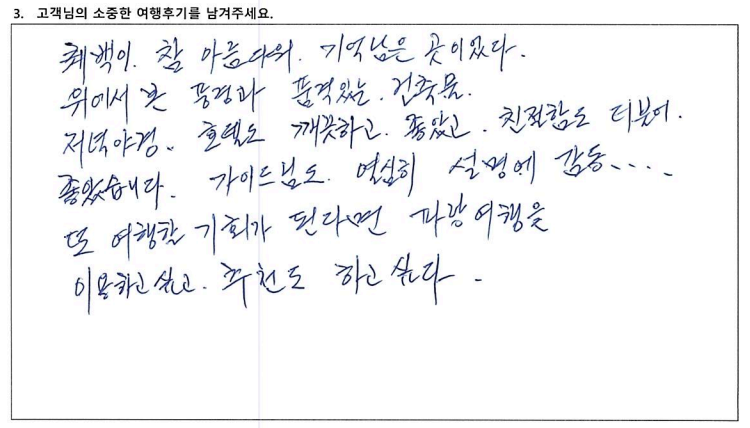 3. 고객님의 소중한 여행후기를 남겨주세요.
참 아름다워. 기억남은 곳이었다.
위에서 본 풍경과 품격있는. 건축물.
저녁야경. 호텔도 깨끗하고. 좋았고. 친절함도 더불어.
좋았습니다. 가이드님도. 열심히 설명에 감동....
또 여행할 기회가 된다면 파랑여행을
이용하고 싶고. 추천도 하고 싶다.